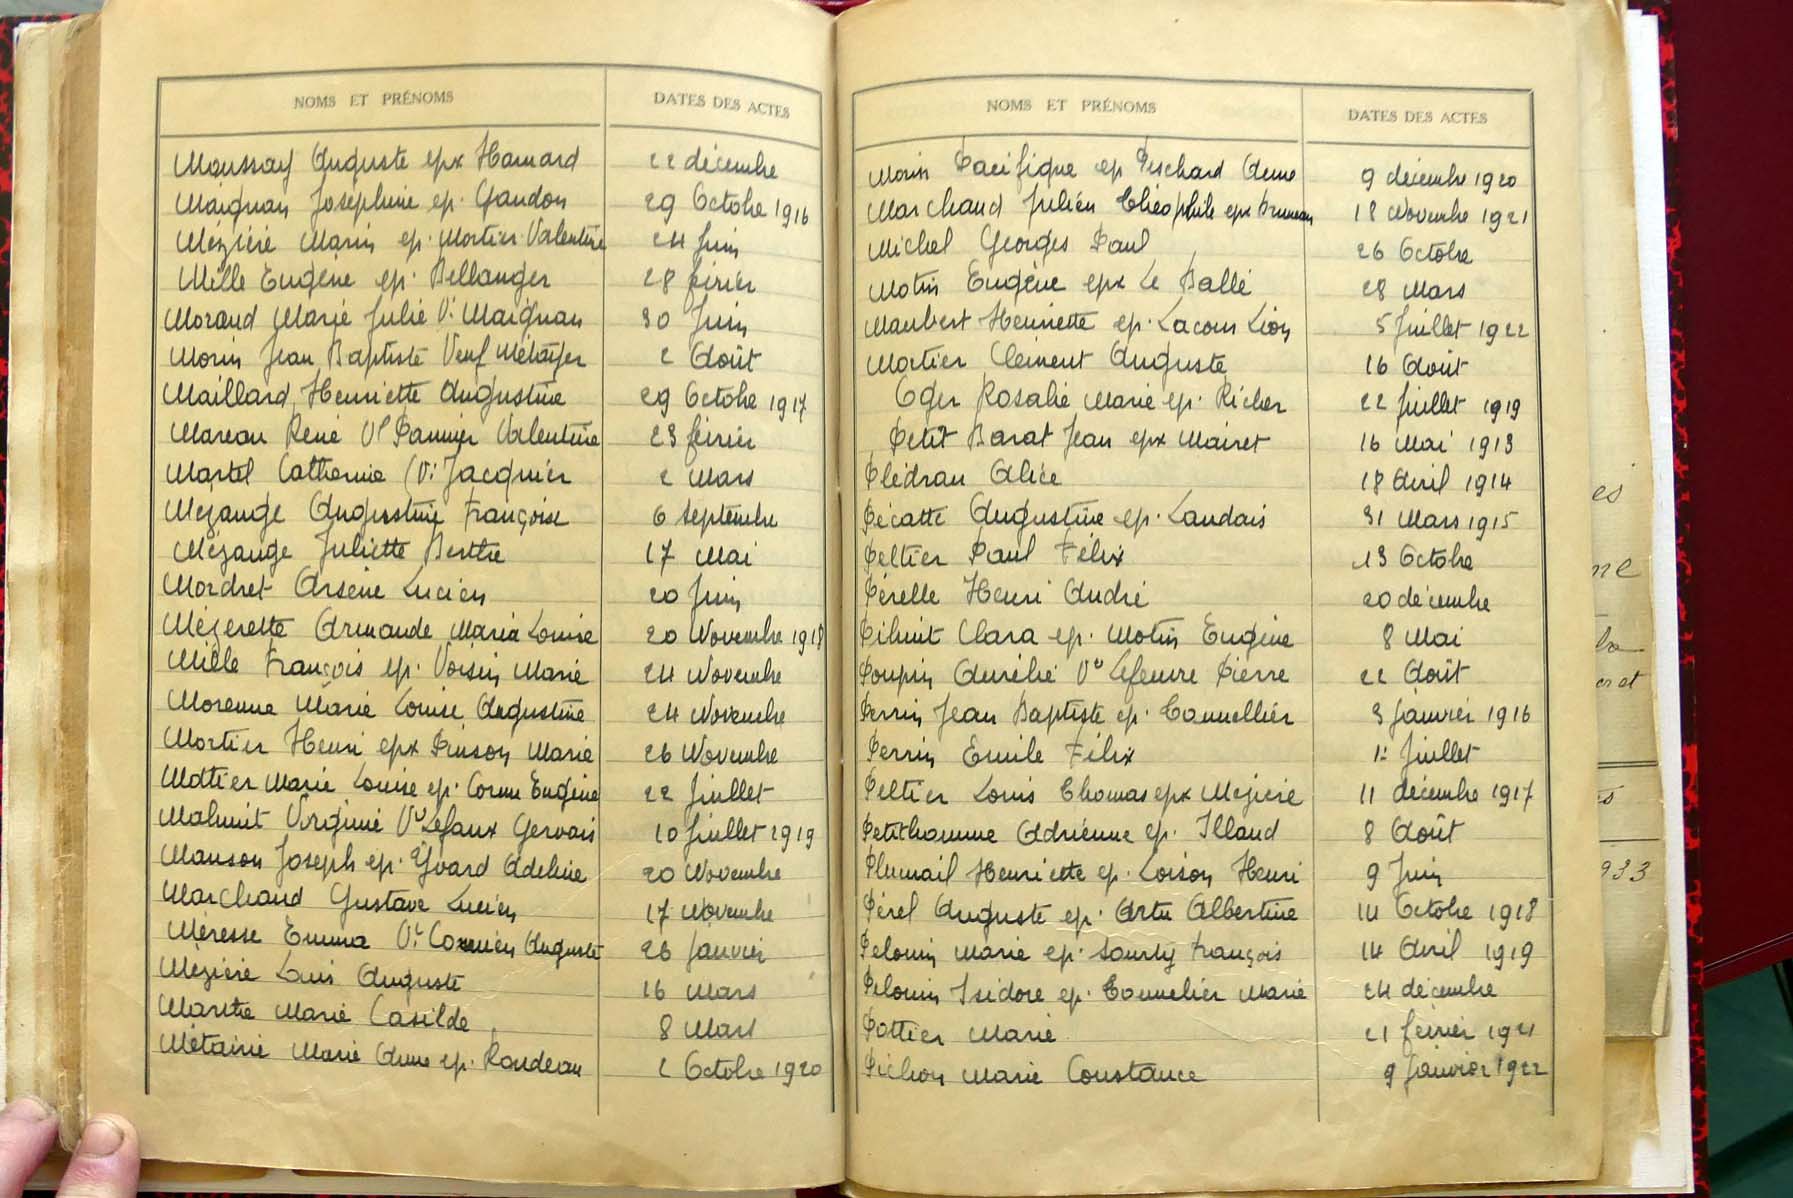 NOMS ET PRÉNOMS DATES DES ACTES
Moussay Auguste epx Hamard 22 décembre
Maignan Josephine ep. Gandon 29 Octobre 1916
Mézière Marin ep. Mortier Valentine 24 Juin
Mille Eugène ep. Bellanger 28 février
Morand Marie Julie Vve Maignan 30 Juin
Morin Jean Baptiste Veuf Métaijer 2 Août
Maillard Henriette Augustine 29 Octobre 1917
Mareau René Vf Pannier Valentine 23 février
Martel Catherine (Vve Jacquier 2 Mars
Mezange Augustine Françoise 6 Septembre
Mézange Juliette Berthe 17 Mai
Mordret Arsène Lucien 20 Juin
Mézerette Armande Maria Louise 20 Novembre 1918
Mille François ep. Voisin Marie 24 Novembre
Morenne Marie Louise Augustine 24 Novembre
Mortier Henri epx Pinson Marie 26 Novembre
Mottier Marie Louise ep. Cornu Eugène 22 Juillet
Mahuit Virginie Vve Lefaux Gervais 10 Juillet 1919
Manson Joseph ep. Yvard Adeline 20 Novembre
Marchand Gustave Lucien 17 Novembre
Méresse Emma Vve Auguste 26 Janvier
Mézière Louis Auguste 16 Mars
Marthe Marie Casilde 8 Mars
Métairie Marie Anne ep. Rondeau 2 Octobre 1920
NOMS ET PRÉNOMS DATES DES ACTES
Morin Pacifique ep Peschard Anne 9 décembre 1920
Marchand Julien Théophile epx Bruneau 18 Novembre 1921
Michel Georges Paul 26 Octobre
Motin Eugène epx Le Ballé 28 Mars
Maubert Henriette ep. Lacour Léon 5 Juillet 1922
Mortier Clément Auguste 16 Août
Oger Rosalie Marie ep. Richer 22 Juillet 1919
Petit Barat Jean epx Mairet 16 Mai 1913
Plédran Alice 18 Avril 1914
Pécatte Augustine ep. Landais 31 Mars 1915
Peltier Paul Félix 13 Octobre
Pérelle Henri André 20 décembre
Pihuit Clara ep. Motin Eugène 8 Mai
Poupin Aurélie Vve Lefeuvre Pierre 22 Août
Perrin Jean Baptiste ep. Tonnellier 3 Janvier 1916
Perrin Emile Félix 1er Juillet
Peltier Louis Thomas epx Mezière 11 décembre 1917
Petithomme Adrienne ep. Illand 8 Août
Plumail Henriette ep. Loison Henri 9 Juin
Pérel Auguste ep. Artu Albertine 14 Octobre 1918
Pelouin Marie ep. Sourty François 14 Avril 1919
Pelouin Isidore ep. Tonnelier Marie 24 décembre
Pottier Marie 21 février 1921
Pichon Marie Constance 9 Janvier 1922